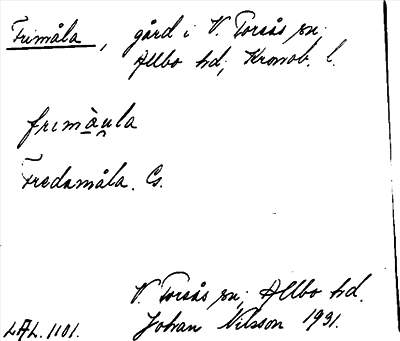 Frimåla, gård i V. Torsås sn;
Allbo hd; Kronob. l.
frimàu̯la
Fredamåla. Cs.
V. Torsås sn; Allbo hd.
LAL. 1101. Johan Nilsson 1931.